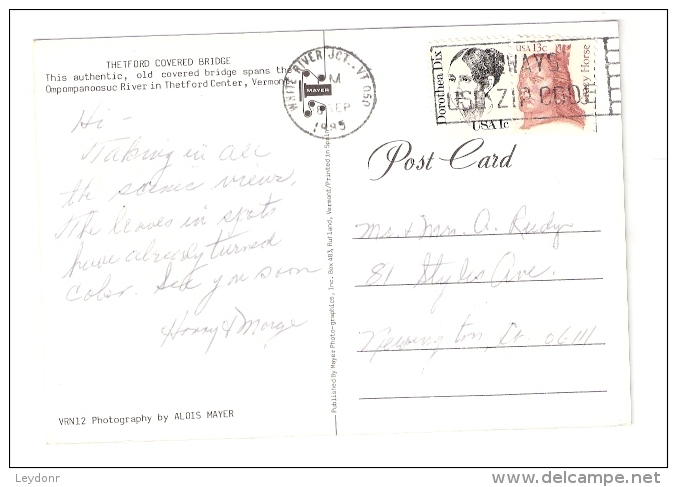 THETFORD COVERED BRIDGE
This authentic, old covered bridge spans the
Ompompanoosuc River in Thetford Center, Vermont
Hi -
Taking in all
the scenic views,
The leaves in spots
have already turned
color. See you soon
Harry & Marge
VRN12 Photography by ALOIS MAYER
Published By Mayer Photo-graphics, Inc. Box 483, Rutland, Vermont/Printed in Spain
MAYER
WHITE RIVER JCT., VT 050
SEP
1985
Dorothea Dix
USA 1c
USA 13c
Crazy Horse
WAYS
USE ZIP CODE
Post Card
Mr. & Mrs. A. Rudy
81 Styles Ave.
Newington, Ct. 06111
Leydonr
www.delcampe.net